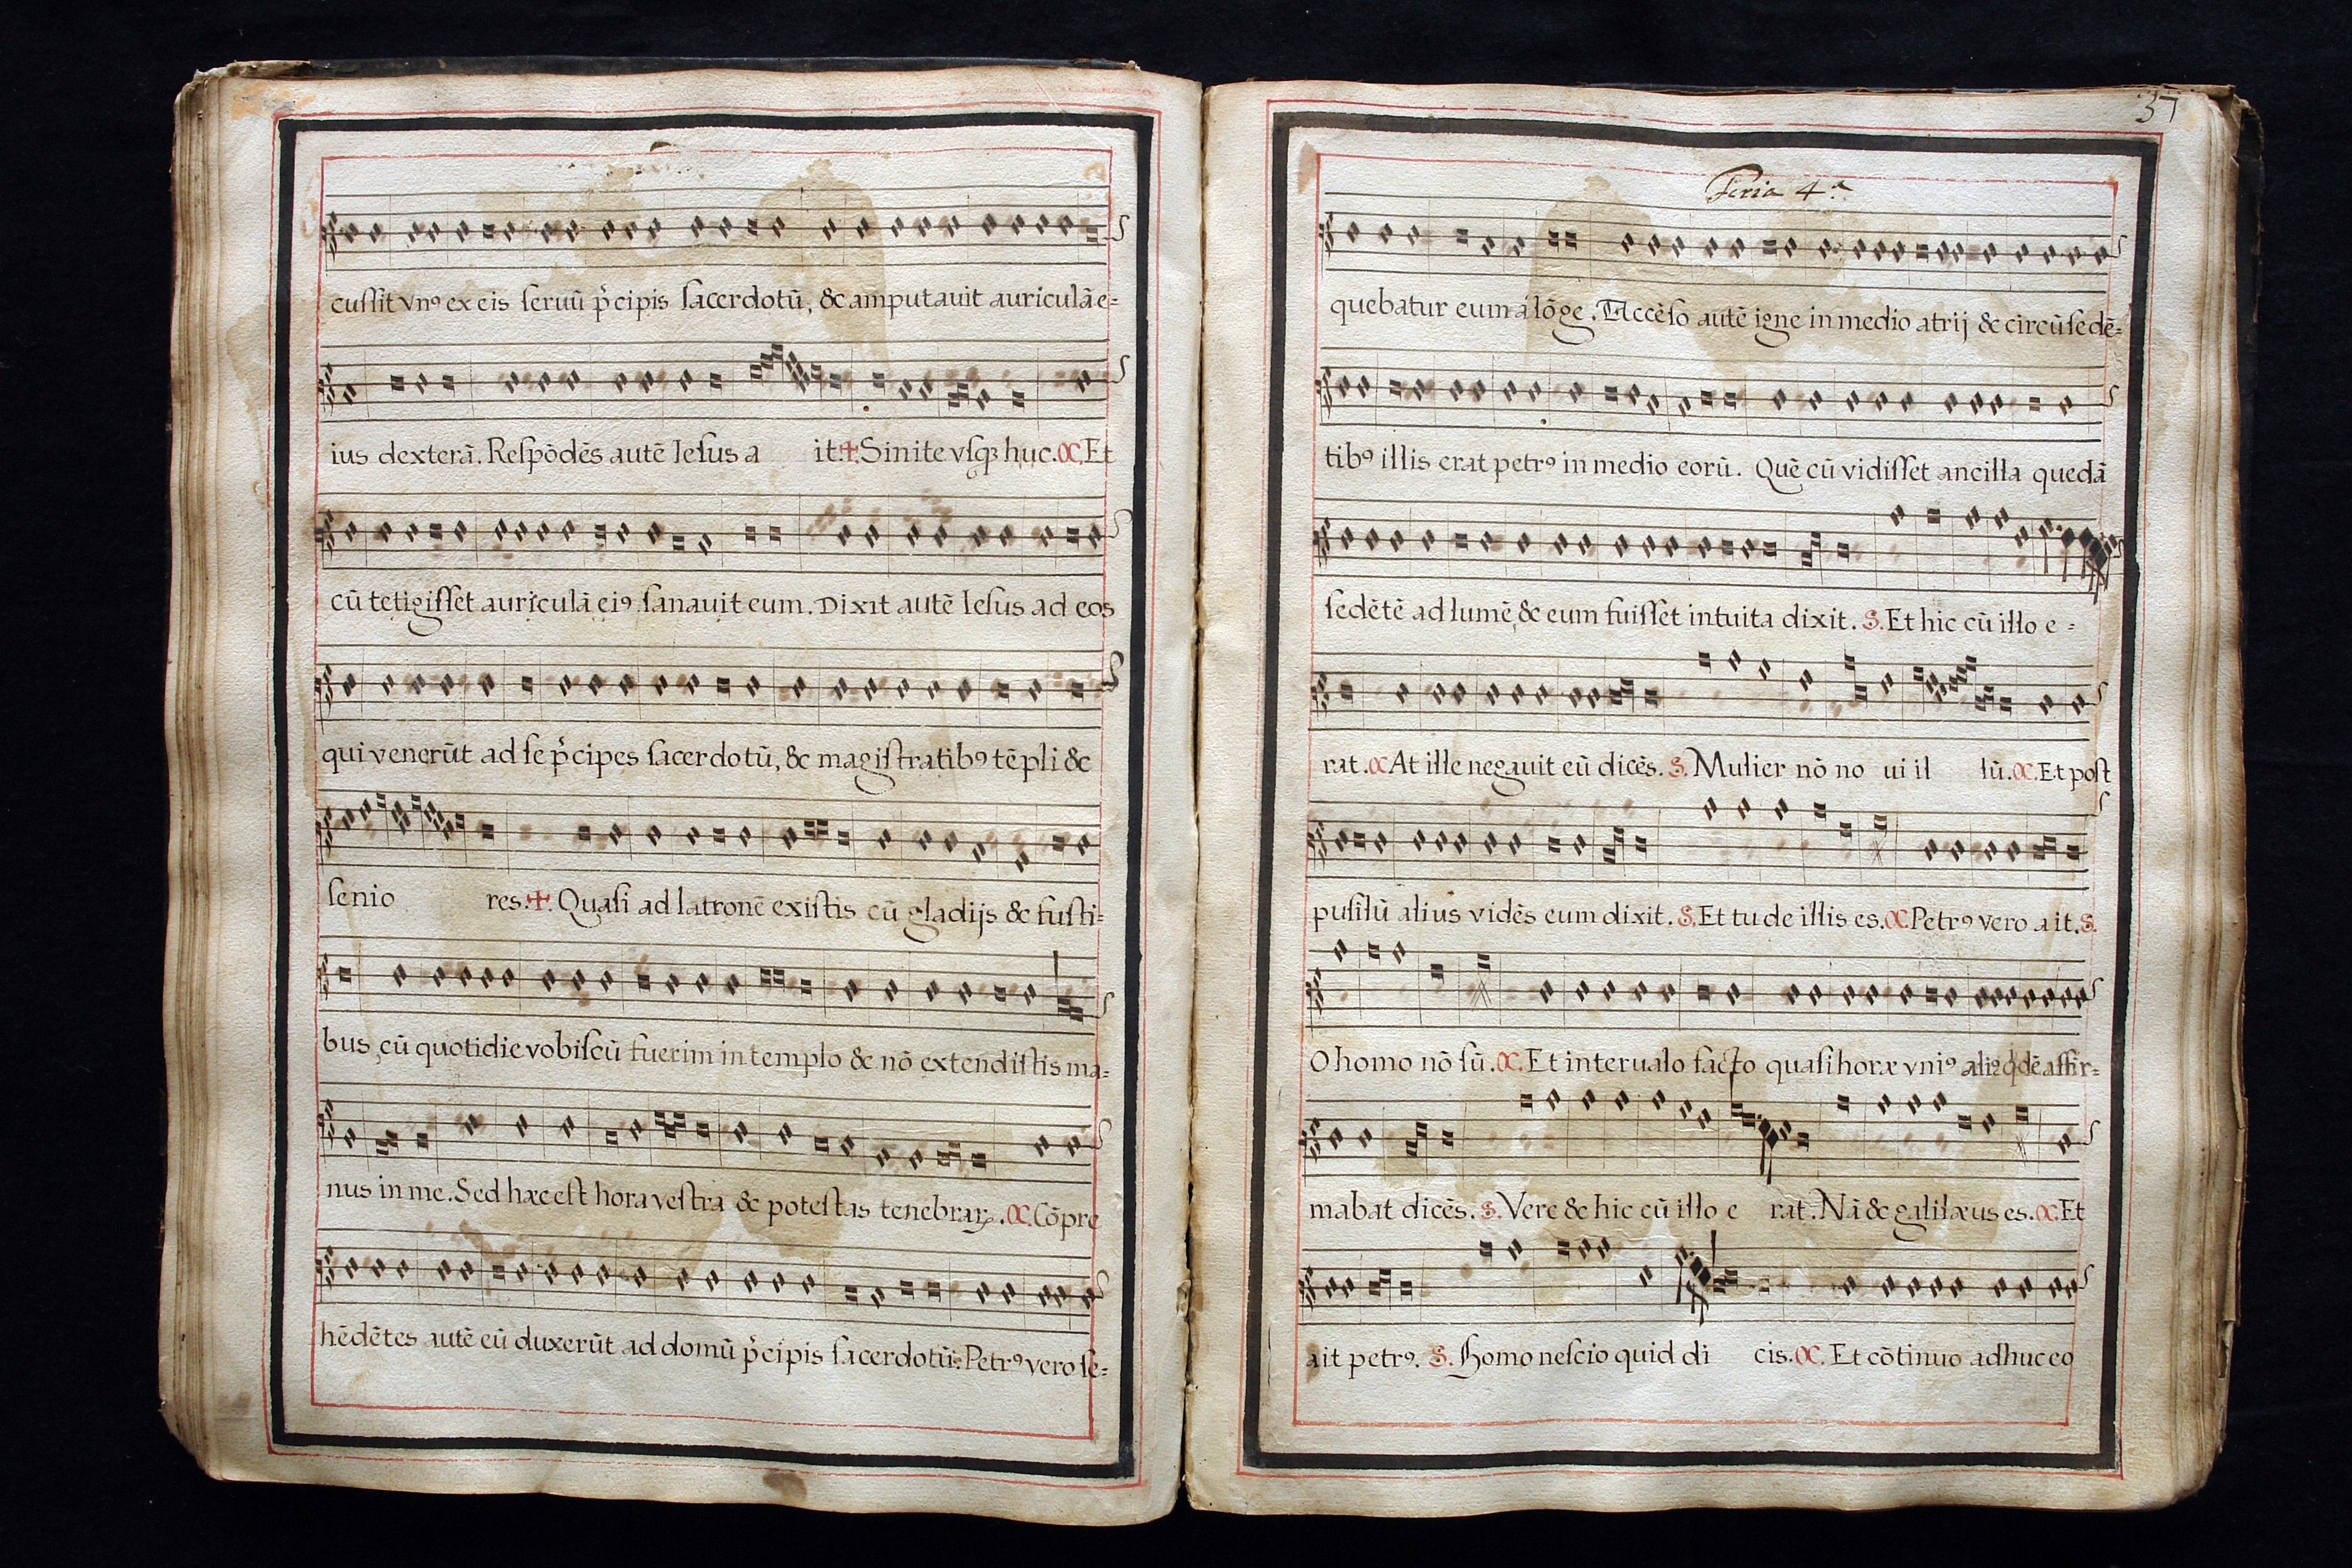 cussit vnꝰ ex eis seruū p̓cipis sacerdotū, &c amputauit auriculā e=
ius dexterā. Respōdēs autē Iesus a it: ✝. Sinite vsqꝫ huc. C. Et
cū tetigisset auriculā eiꝰ sanauit eum. Dixit autē Iesus ad eos
qui venerūt ad se p̓cipes sacerdotū, &c magistratibꝰ tēpli &c
senio res. ✝. Quasi ad latronē existis cū gladijs &c fusti=
bus, cū quotidie vobiscū fuerim in templo &c nō extendistis ma=
nus in me. Sed hæc est hora vestra &c potestas tenebraꝝ. C. Cōpre
hēdētes autē eū duxerūt ad domū p̓cipis sacerdotū: Petrꝰ vero se=
37
Feria 4.ª
quebatur eum á lōge. Accēso autē igne in medio atrij &c circūsedē=
tibꝰ illis erat petrꝰ in medio eorū. Quē cū vidisset ancilla quedā
sedētē ad lumē, &c eum fuisset intuita dixit. S. Et hic cū illo e=
rat. C At ille negauit eū dicēs. S. Mulier nō no ui il lū. C. Et post
pusilū alius vidēs eum dixit. S. Et tu de illis es. C. Petrꝰ vero ait. S.
O homo nō sū. C. Et interualo facto quasi horæ vniꝰ aliꝰ qdē affir=
mabat dicēs. S. Vere &c hic cū illo e rat. Nā &c galilæus es. C. Et
ait petrꝰ. S. Homo nescio quid di cis. C. Et cōtinuo adhuc eo